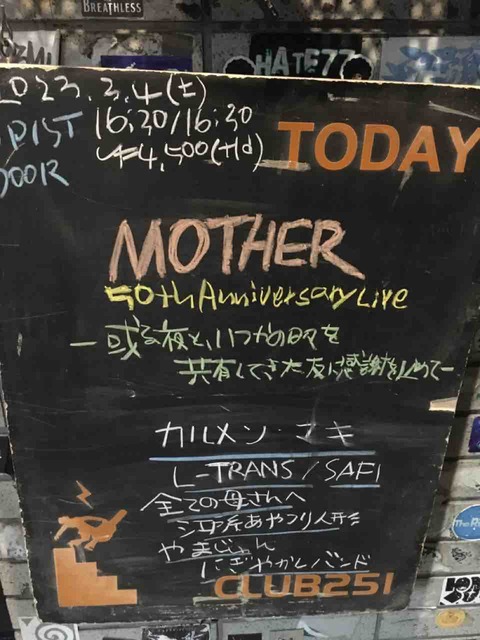 BREATHLESS
HATE77
2023.3.4(土)
16:30/16:30
¥4,500(+1d)
TODAY
MOTHER
50th Anniversary Live
ー或る夜と、いつかの日々を
共有してきた友に感謝を込めてー
カルメン・マキ
L-TRANS / SAFI
全ての母さんへ
あやつり人形
やまじゅん
にぎやかしバンド
CLUB251